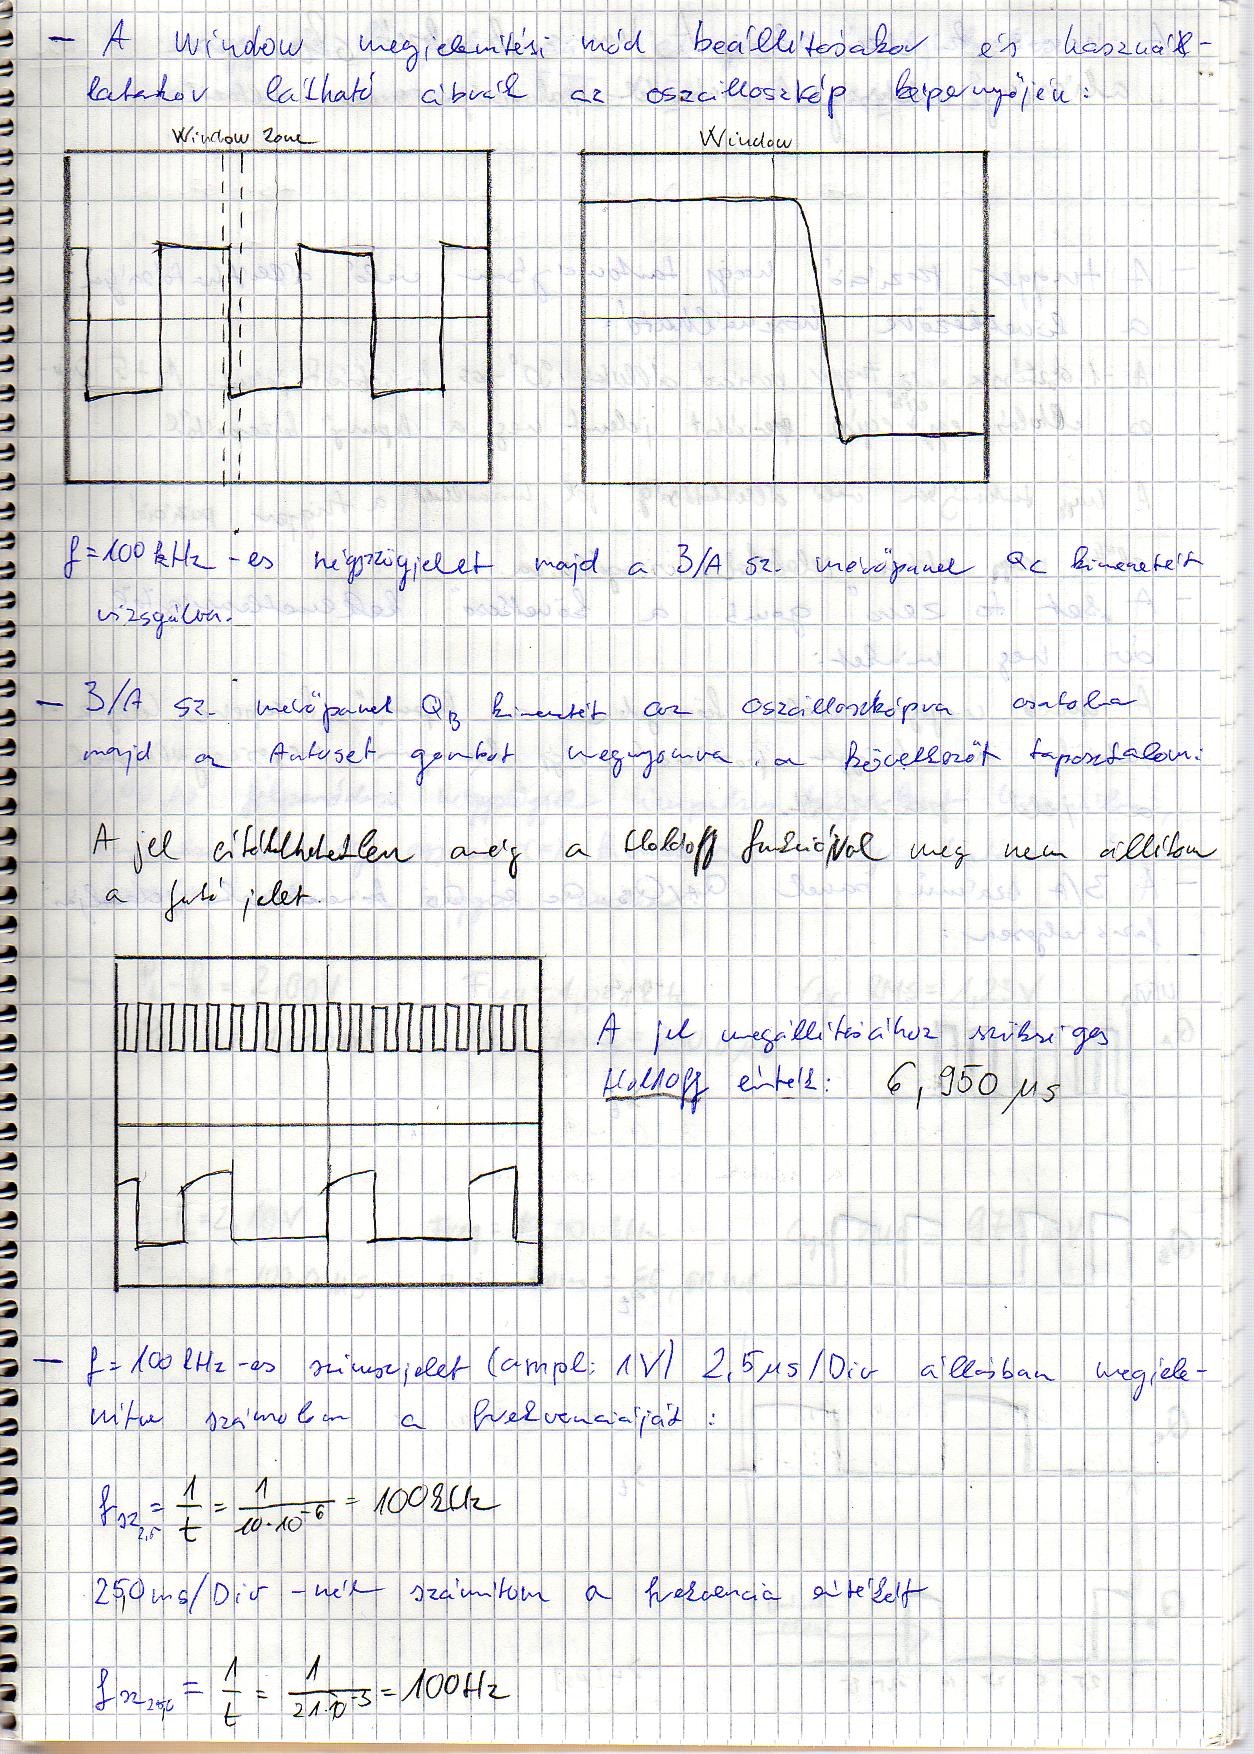 - A Window megjelenítési mód beállításakor és haszná-
latakor látható ábrák az oszcilloszkóp képernyőjén:
Window Zone
Window
f=100 kHz-es négyszögjelet majd a 3/A sz. mérőpanel QC kimenetét
vizsgálva.
- 3/A sz. mérőpanel QB kimenetét az oszcilloszkópra csatolva
majd az Autoset gombot megnyomva a következőt tapasztalom:
A jel értékelhetetlen amíg a Holdoff funkcióval meg nem állítom
a futó jelet.
A jel megállításához szükséges
Holdoff érték: 6,950 µs
- f=100 kHz-es szinuszjelet (ampl: 1V) 2,5µs/Div állásban megjele-
nítve számolom a frekvenciáját:
fsz2,5 = 1/t = 1/10·10^-6 = 100kHz
25,0ms/Div -nél számítom a frekvencia értékét
fsz25,0 = 1/t = 1/21·10^-3 = 100Hz